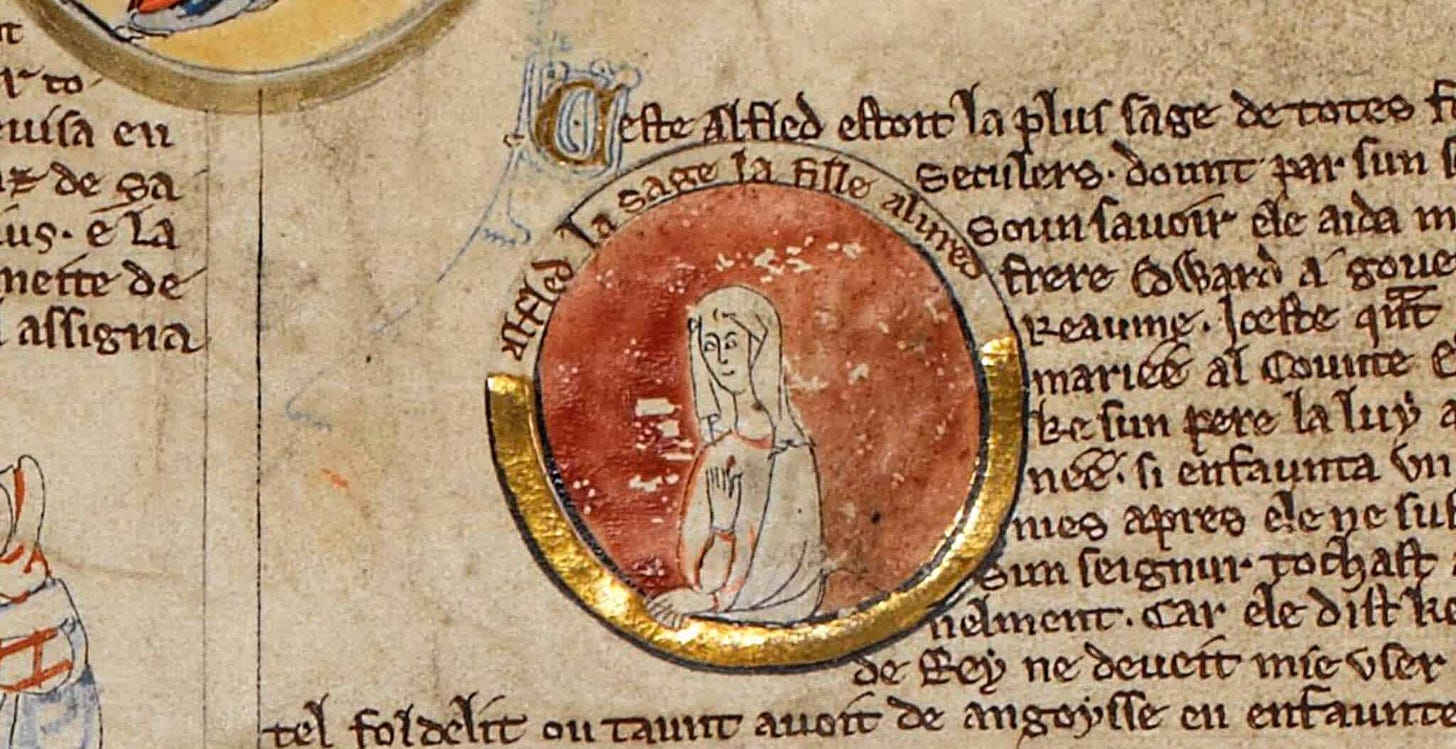 r to
euisa en
de sa
ius. e la
mette de
assigna
Alfled la sage la fille alured
Ceste Alfled estoit la plus sage de totes
seculers. dount par sun
soun sauoir ele aida
frere Edward a goue
Reaume. Iceste qnt
mariee al Counte
ke sun pere la luy
nee. si enfaunta vn
mes apres ele ne
sun seignur tochast
nelment. Car ele dist
de Rey ne deueit mie vser
tel foldelit ou taunt auoit de angoysse en enfaunte